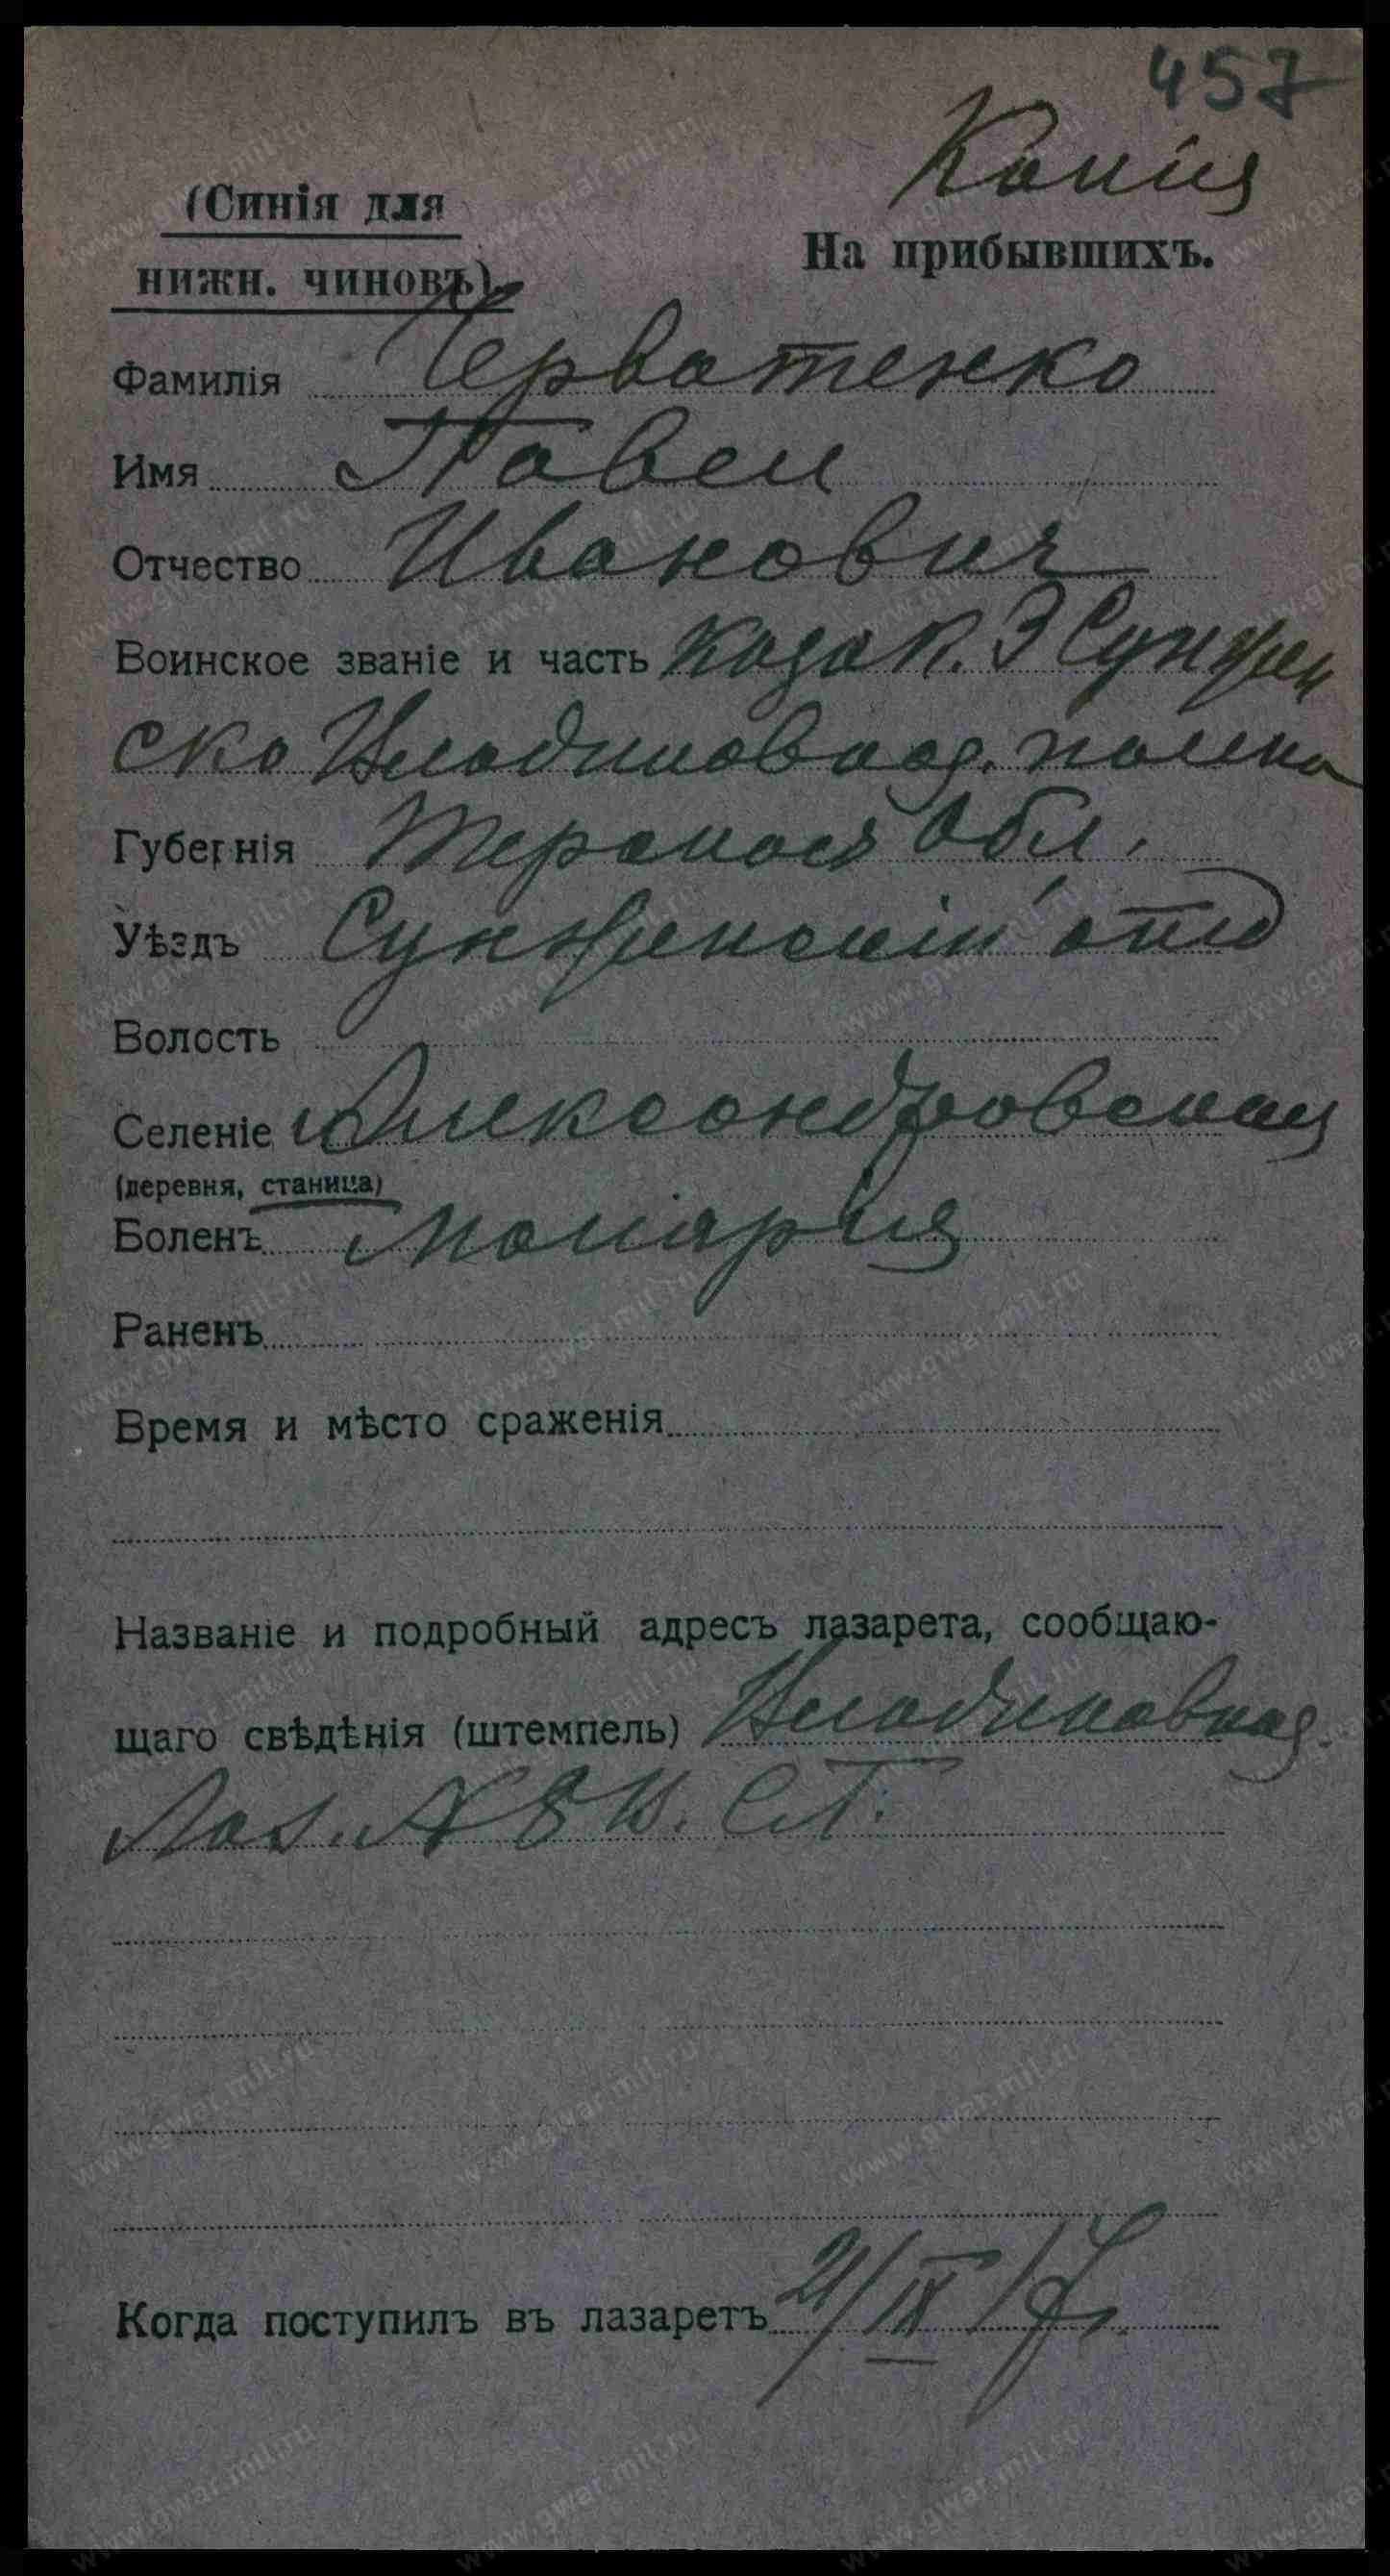 457
Копія
(Синія для
На прибывшихъ.
нижн. чиновъ).
Фамилія Черватенко
Имя Павел
Отчество Иванович
Воинское званіе и часть Козак. 3 Сунжен
ско Владикавказ. полка
Губернія Терской Обл.
Уѣздъ Сунженскій отд
Волость
Селеніе Александровская
(деревня, станица)
Боленъ молярия
Раненъ
Время и мѣсто сраженія
Названіе и подробный адресъ лазарета, сообщаю-
щаго свѣдѣнія (штемпель) Владикавказ.
Лаз. № 8
Когда поступилъ въ лазаретъ 21/IX 17 г.